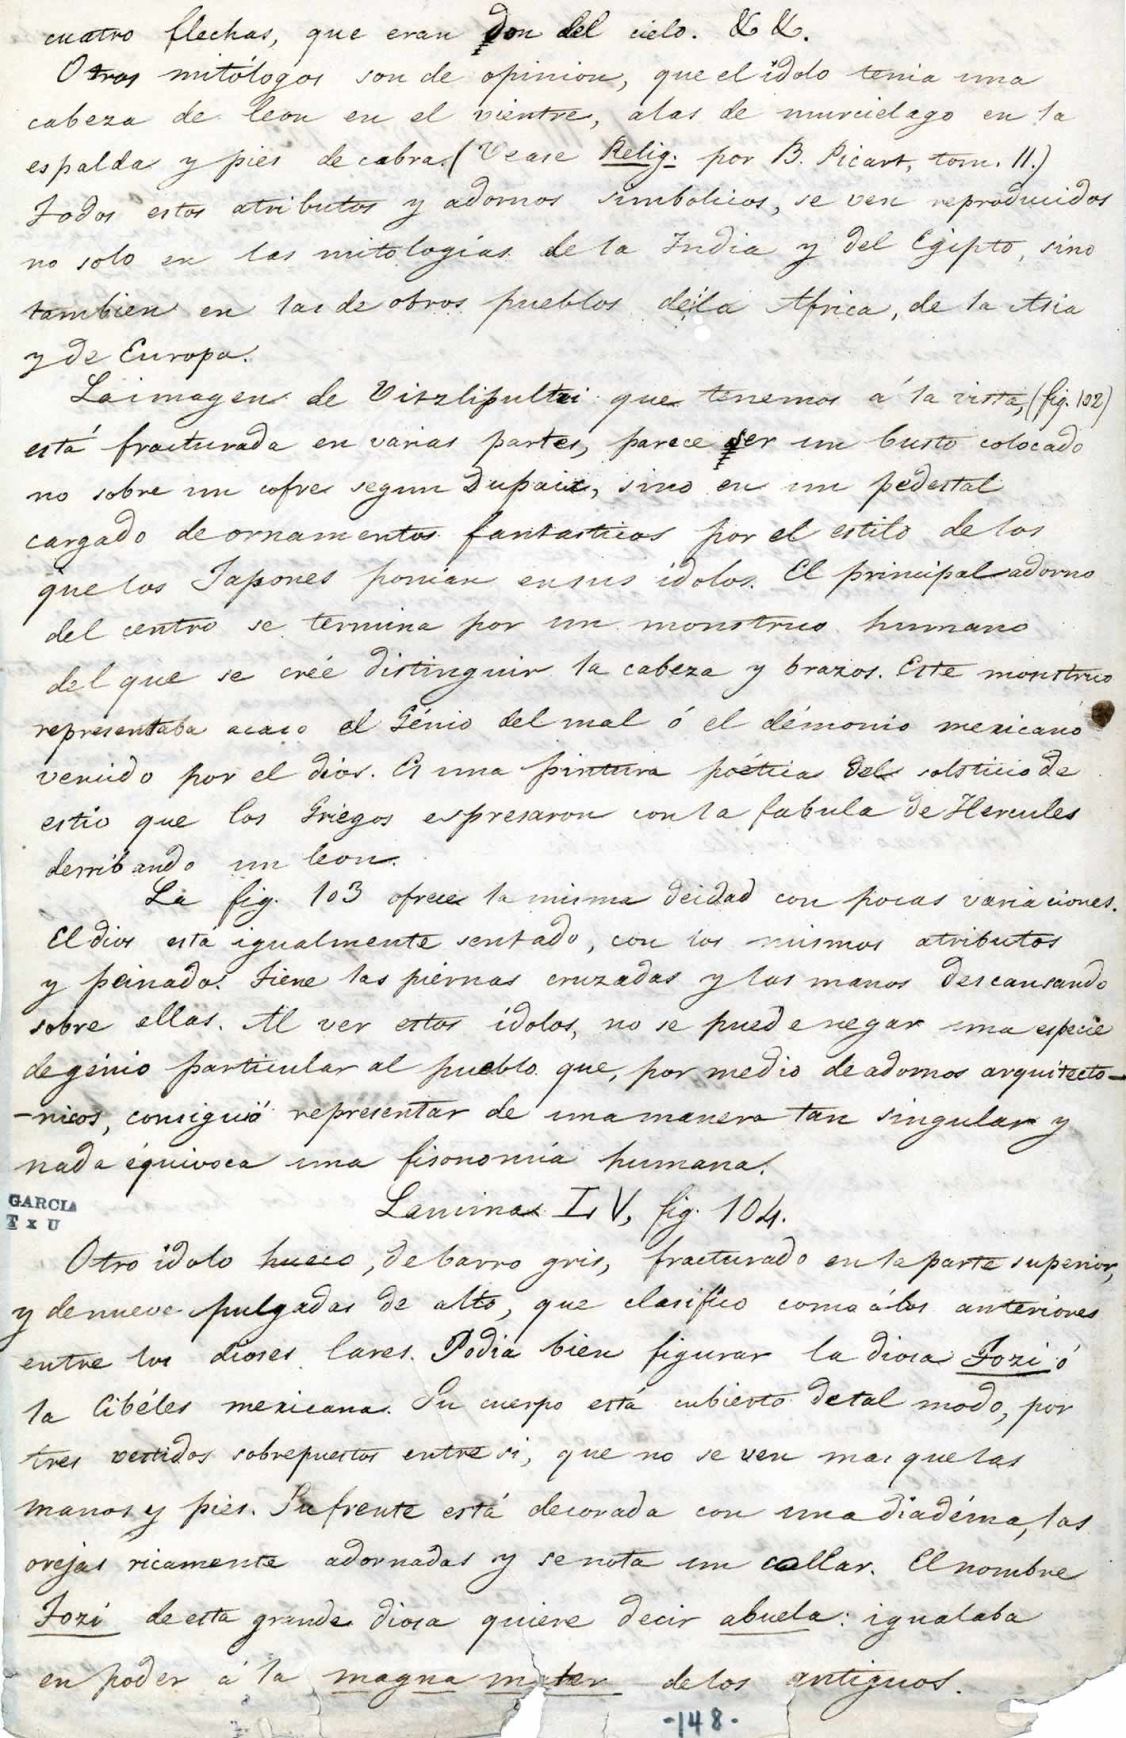 cuatro flechas, que eran don del cielo. && .
Otros mitólogos son de opinion, que el idolo tenia una
cabeza de leon en el vientre, alas de murcielago en la
espalda y pies de cabra. (Vease Relig. por B. Picart, tom. 11.)
Todos estos atributos y adornos simbolicos, se ven reproducidos
no solo en las mitologías de la India y del Egipto, sino
tambien en las de otros pueblos de la Africa, de la Asia
y de Europa.
La imagen de Vitzlipultzi que tenemos á la vista, (fig. 102)
está fracturada en varias partes, parece ser un busto colocado
no sobre un cofre segun Dupaix, sino en un pedestal
cargado de ornamentos fantasticos por el estilo de los
que los Japones ponian en sus idolos. El principal adorno
del centro se termina por un monstruo humano
del que se créé distinguir la cabeza y brazos. Este monstruo
representaba acaso el Génio del mal ó el démonio mexicano
vencido por el dios. Es una pintura poética del solsticio de
estio que los Griegos espresaron con la fabula de Hercules
derribando un leon.
La fig. 103 ofrece la misma deidad con pocas variaciones.
El dios está igualmente sentado, con los mismos atributos
y peinado. Tiene las piernas cruzadas y las manos descansando
sobre ellas. Al ver estos idolos, no se puede negar una especie
de génio particular al pueblo que, por medio de adornos arquitecto-
-nicos, consiguió representar de una manera tan singular y
nada équivoca una fisonomía humana.
GARCIA
T x U
Lamina LV, fig. 104.
Otro idolo hueco, de barro gris, fracturado en la parte superior,
y de nueve pulgadas de alto, que clasifico como á los anteriores
entre los dioses lares. Podia bien figurar la diosa Tozi ó
la Cibéles mexicana. Su cuerpo está cubierto de tal modo, por
tres vestidos sobrepuestos entre si, que no se ven mas que las
manos y pies. Su frente está decorada con una diadéma, las
orejas ricamente adornadas y se nota un collar. El nombre
Tozi de esta grande diosa quiere decir abuela: igualaba
en poder á la magna mater de los antiguos.
-148-